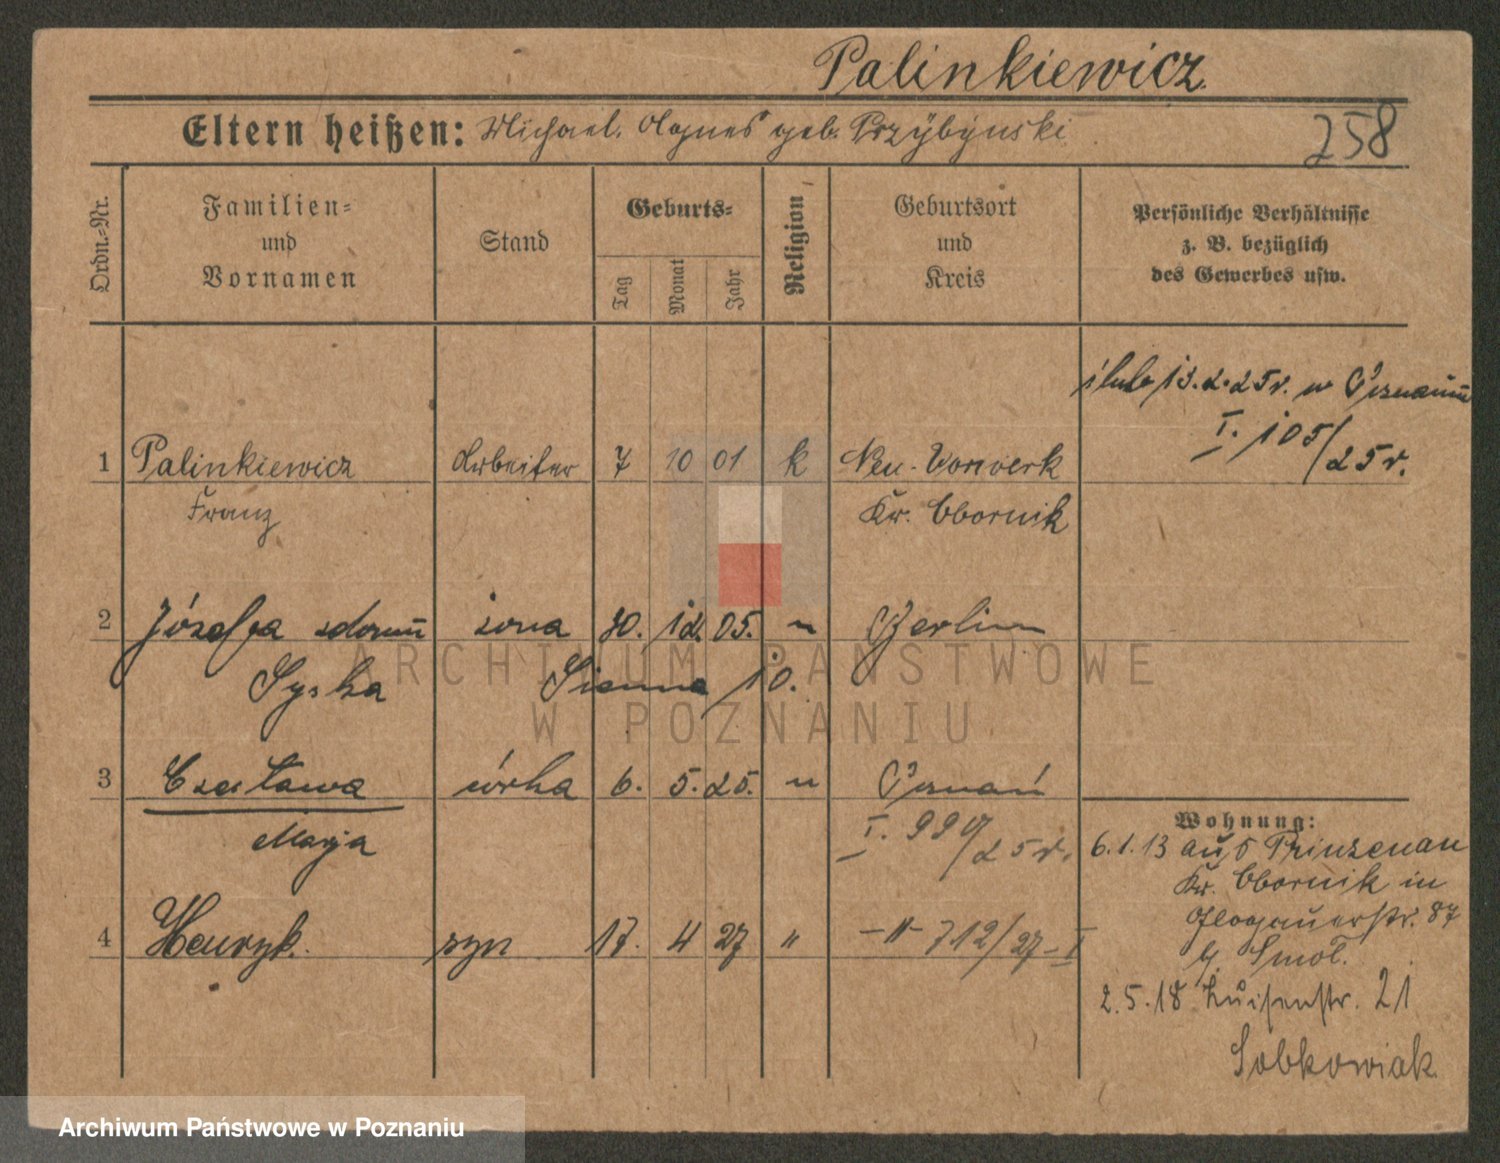 Palinkiewicz
Eltern heißen: Michael. Agnes geb. Przybynski
258
Ordn.-Nr.
Familien-
und
Vornamen
Stand
Geburts-
Tag
Monat
Jahr
Religion
Geburtsort
und
Kreis
Persönliche Verhältnisse
z. B. bezüglich
des Gewerbes usw.
ślub 13.2.25r. w Poznaniu
I. 105/25r.
1 Palinkiewicz Arbeiter 7 10 01 k Neu-Vorwerk
Franz Kr. Obornik
2 Józefa z domu żona 30. 12. 05. " Berlin
Syska Sienna 10.
3 Czesława córka 6. 5. 25. " Poznań
Marja I. 999/25r.
4 Henryk. syn 17. 4 27 " -"- 712/27-I
Wohnung:
6.1.13 aus Prinzenau
Kr. Obornik in
Glogauerstr. 87
b/. Smol.
2.5.18 Luisenstr. 21
Sobkowiak
ARCHIWUM PAŃSTWOWE
W POZNANIU
Archiwum Państwowe w Poznaniu